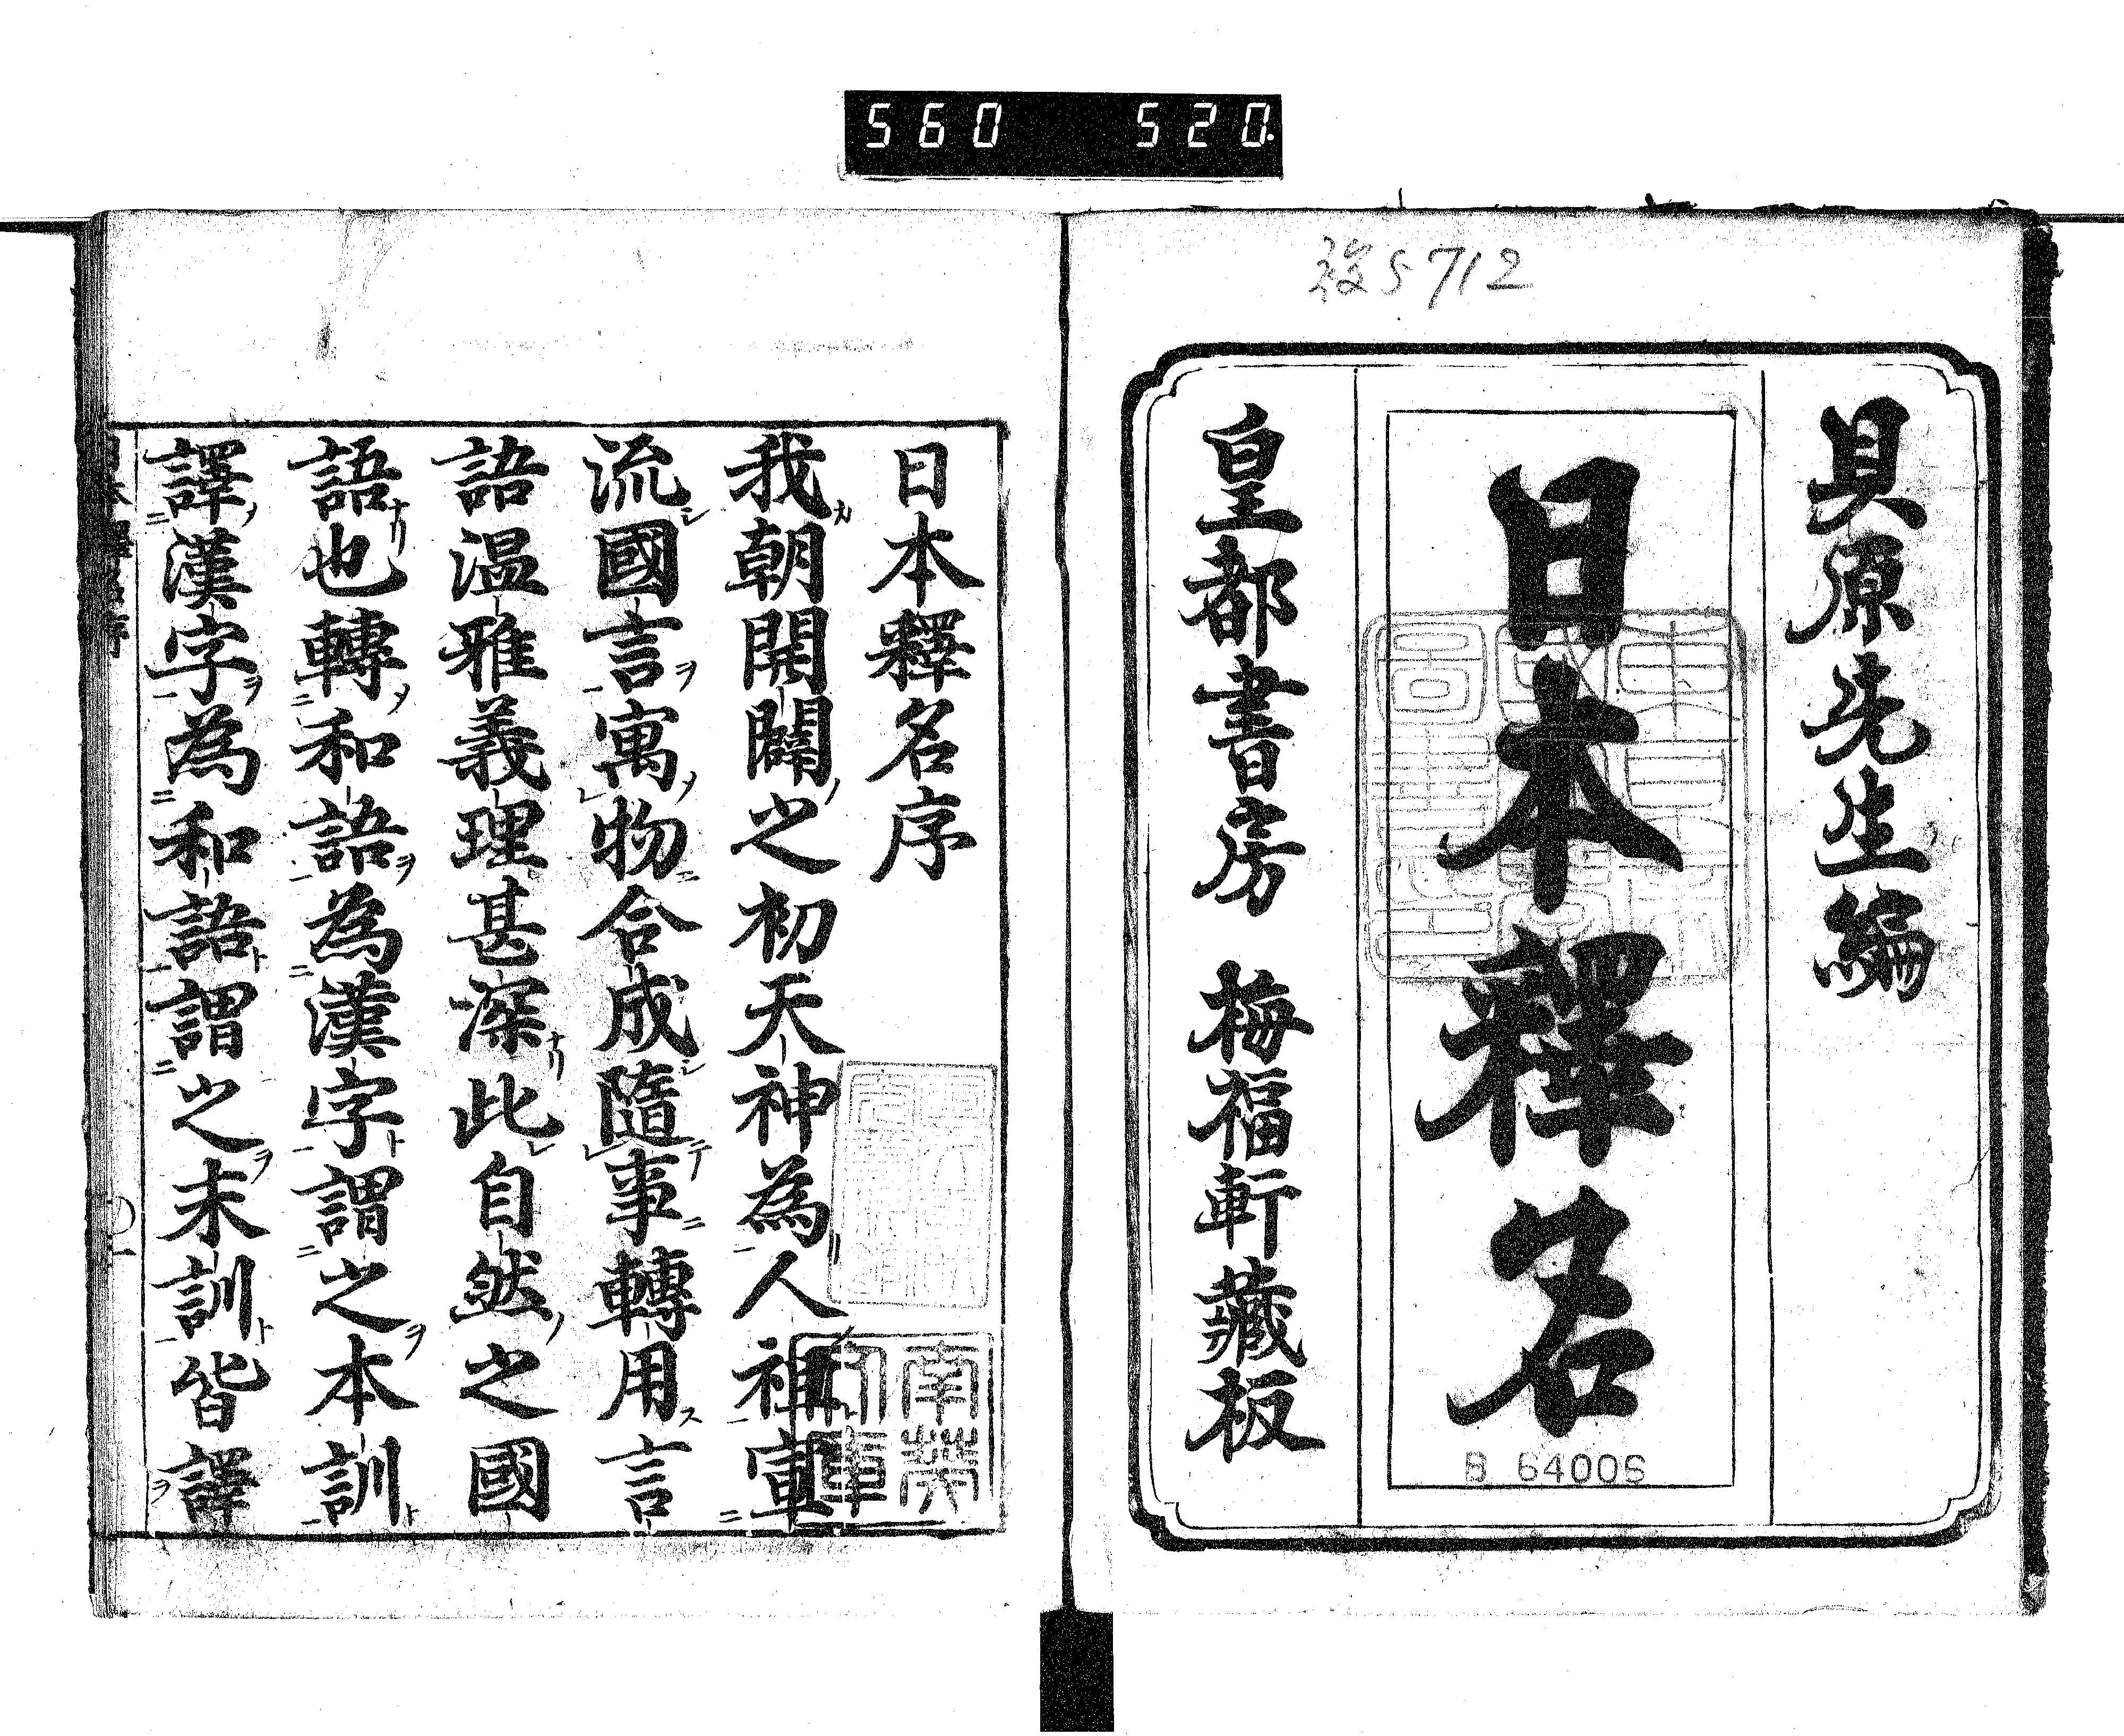 560 520.
5712
貝原先生編
日本釋名
B 64006
皇都書房 梅福軒藏板
日本釋名序
我朝開闢之初天神為人祖宣
流國言寓物合成隨事轉用言
語温雅義理甚深此自然之國
語也轉和語為漢字謂之本訓
譯漢字為和語謂之末訓皆譯
南葵
文庫